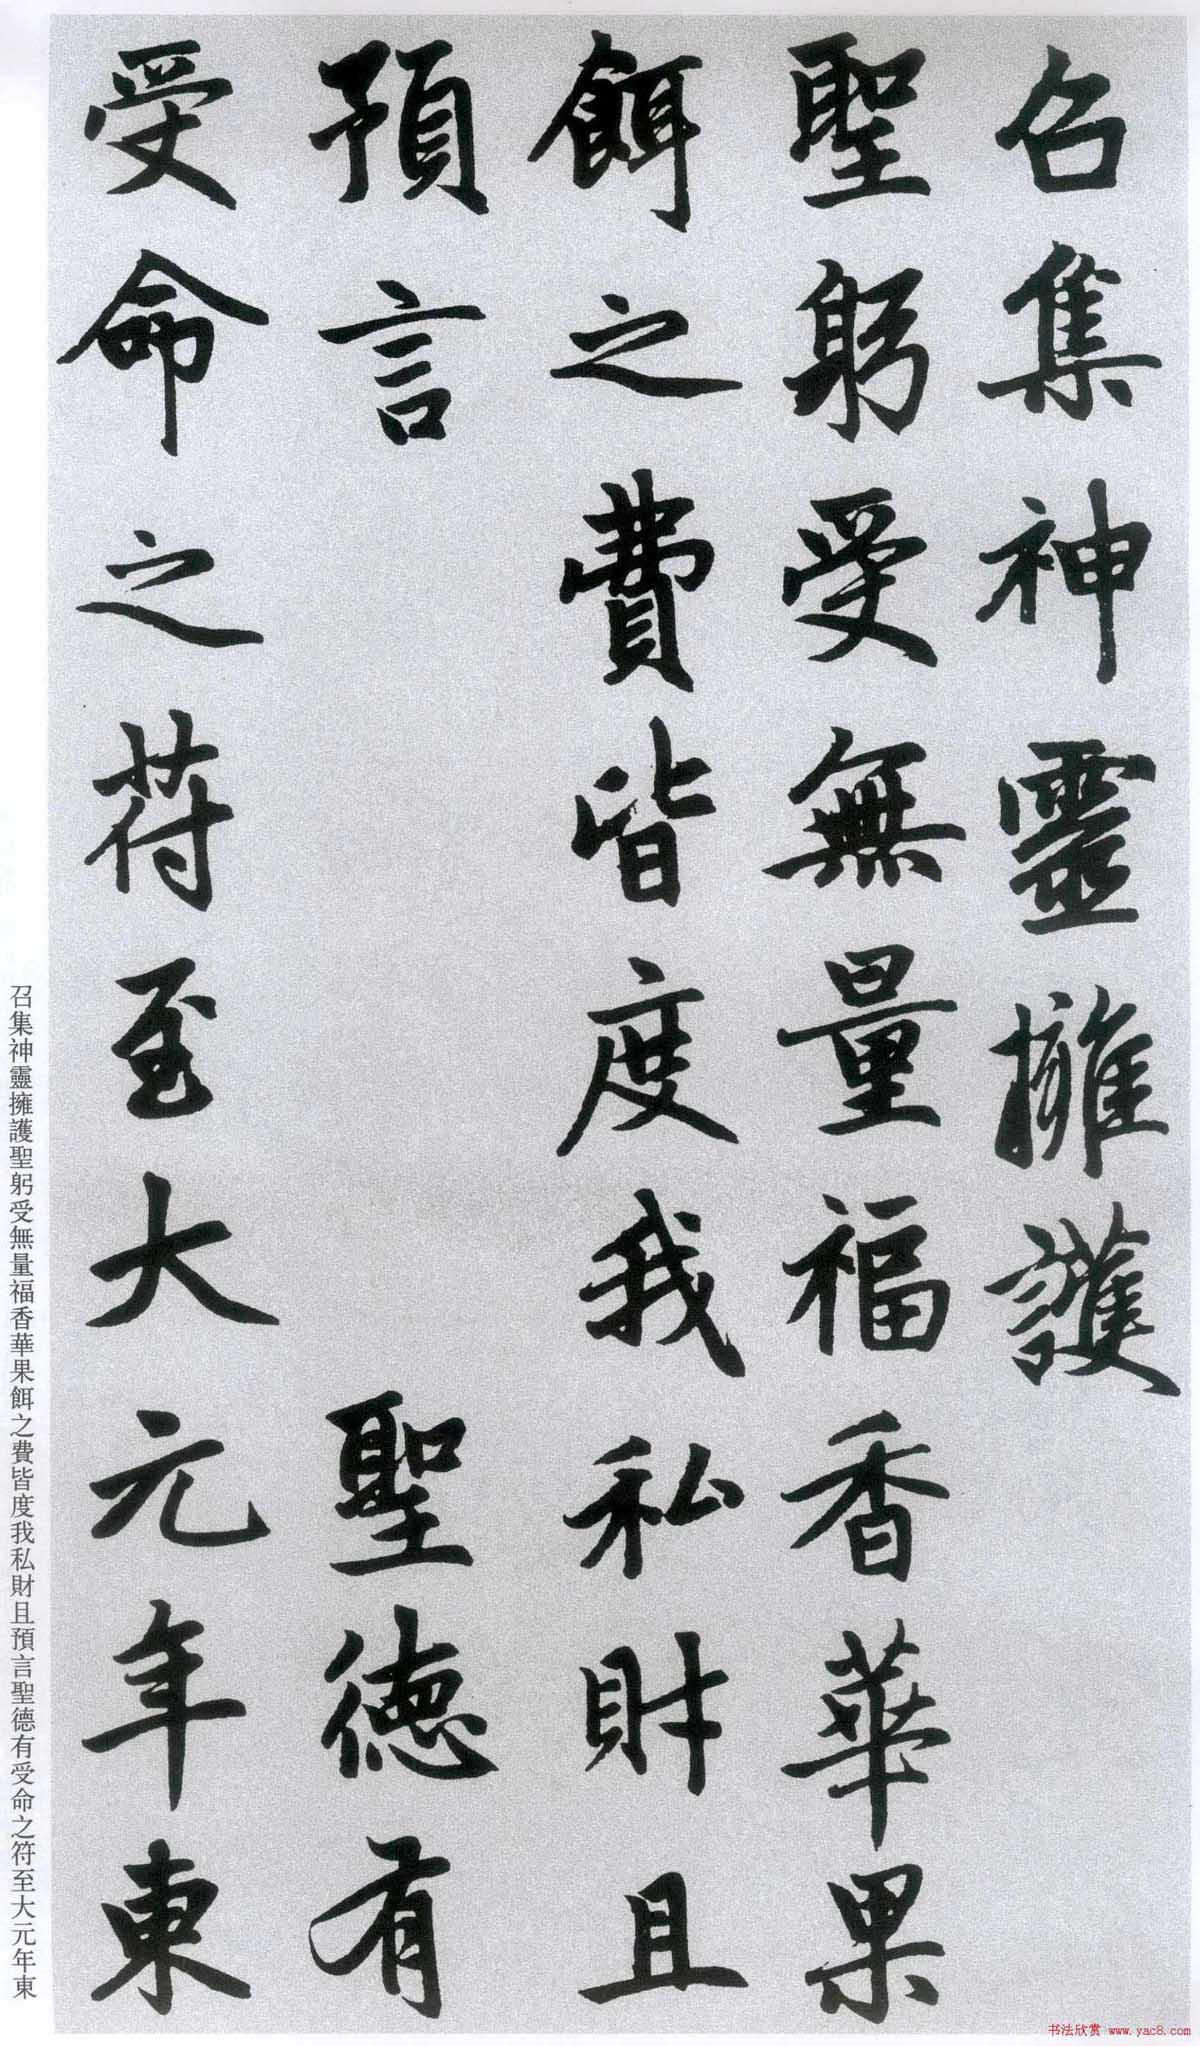 召集神靈擁護
聖躬受無量福香華果
餌之費皆度我私財且
預言聖德有
受命之符至大元年東
召集神靈擁護聖躬受無量福香華果餌之費皆度我私財且預言聖德有受命之符至大元年東
书法欣赏 www.yac8.com